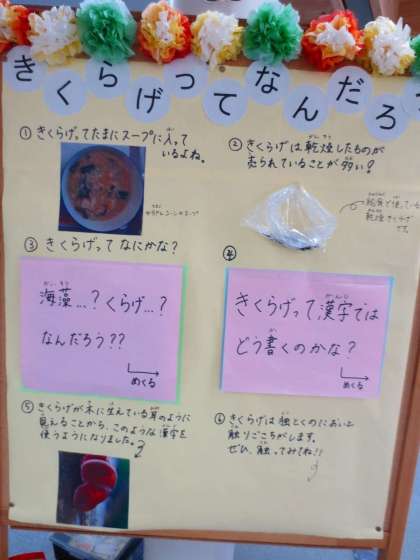 きくらげってなんだろ
① きくらげってたまにスープに入って
いるよね。
② きくらげは乾燥したものが
売られていることが多い？
給食で使っている
乾燥きくらげ
です。
③ きくらげってなにかな？
海藻…？くらげ…？
なんだろう？？
めくる
④
きくらげって漢字では
どう書くのかな？
めくる
⑤ きくらげが木に生えている耳のように
見えることから、このような漢字を
使うようになりました。
⑥ きくらげは独とくのにおいと
触りごこちがします。
ぜひ、触ってみてね!!